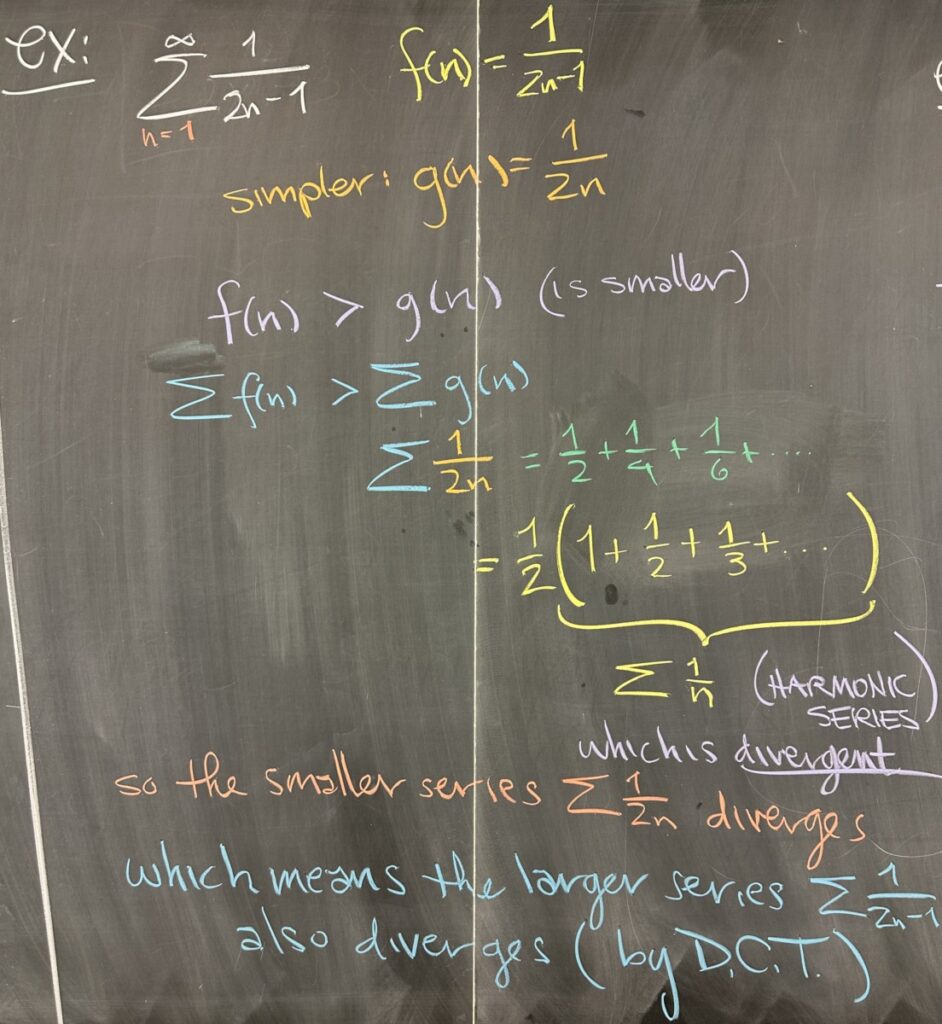 ex: ∞ ∑ n=1 1/(2n-1) f(n) = 1/(2n-1)
simpler: g(n) = 1/(2n)
f(n) > g(n) (is smaller)
∑ f(n) > ∑ g(n)
∑ 1/(2n) = 1/2 + 1/4 + 1/6 + ....
= 1/2 (1 + 1/2 + 1/3 + ....)
∑ 1/n (HARMONIC
SERIES)
which is divergent
so the smaller series ∑ 1/(2n) diverges
which means the larger series ∑ 1/(2n-1)
also diverges (by D.C.T.)